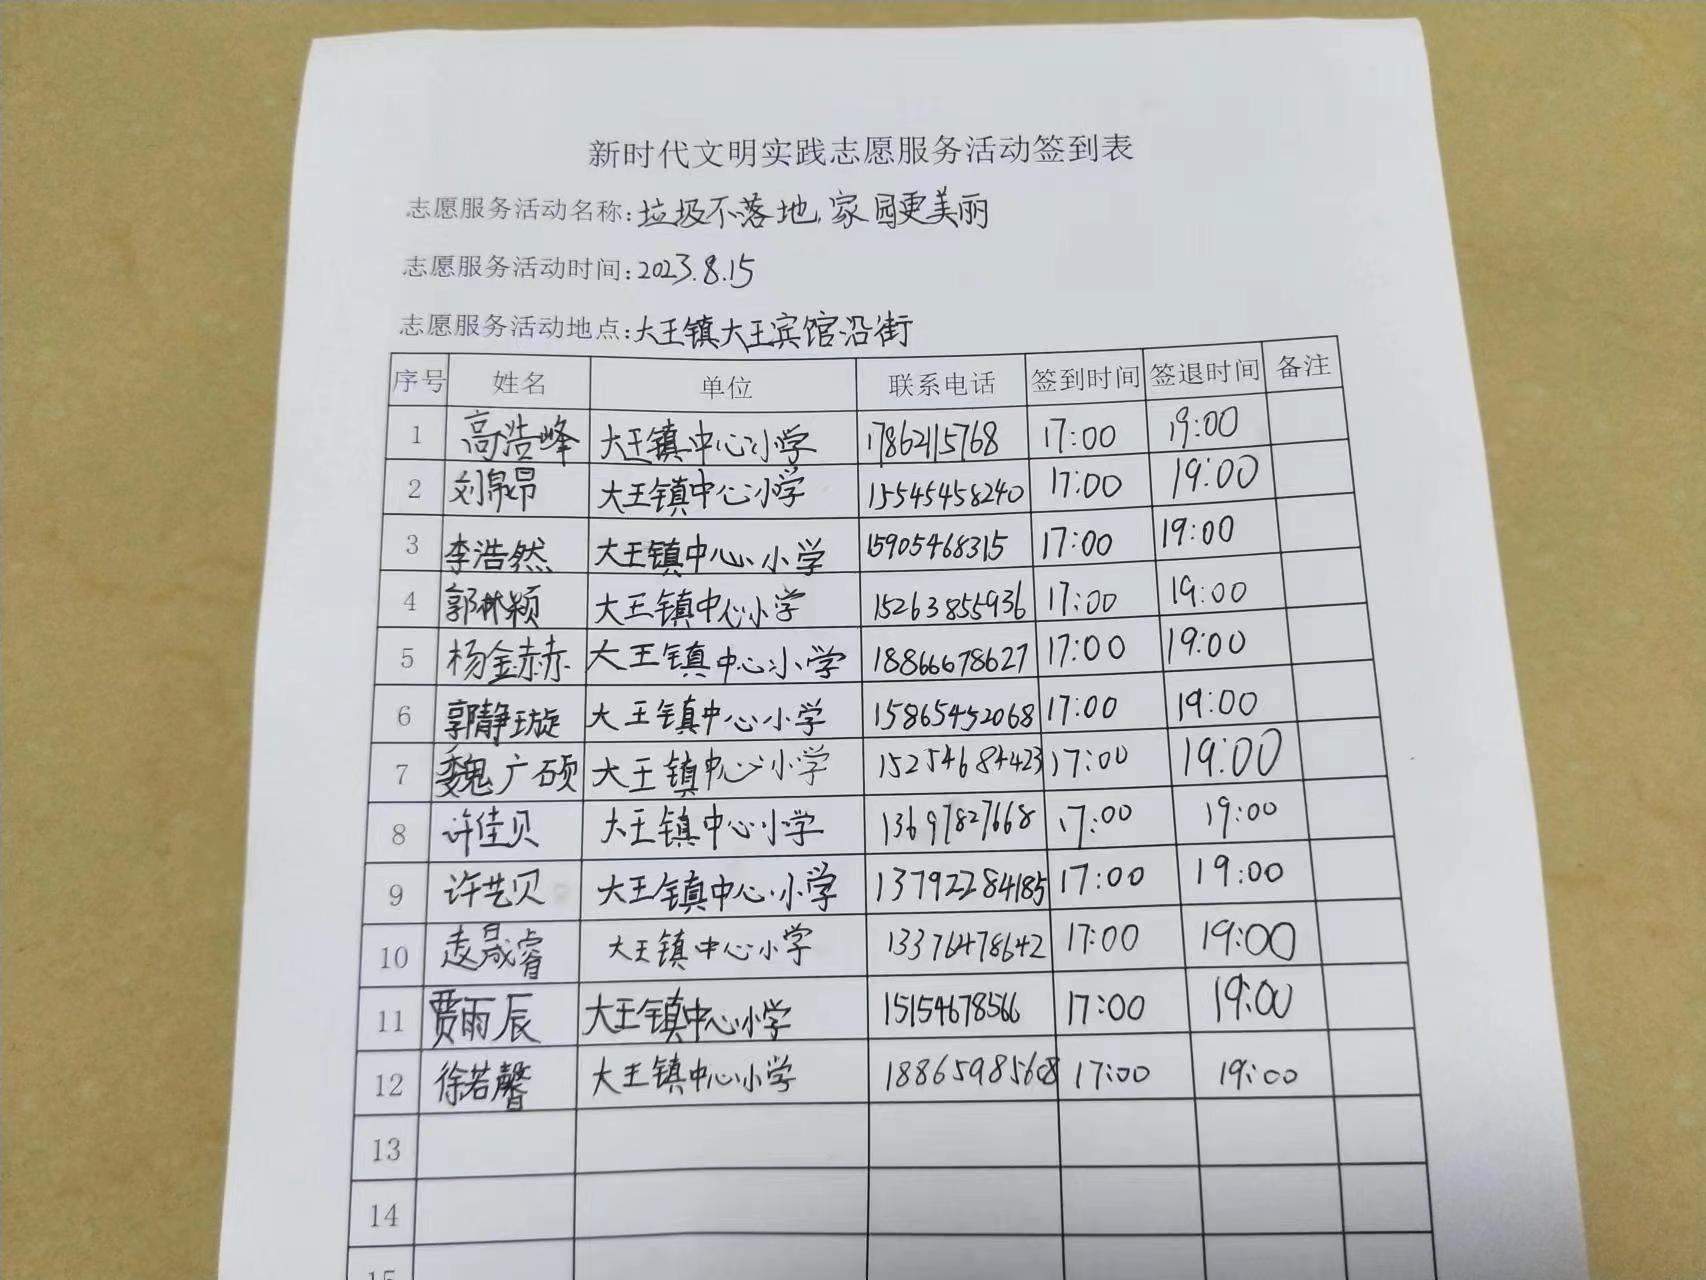 新时代文明实践志愿服务活动签到表
志愿服务活动名称:垃圾不落地,家园更美丽
志愿服务活动时间:2023.8.15
志愿服务活动地点:大王镇大王宾馆沿街
序号 姓名 单位 联系电话 签到时间 签退时间 备注
1 高浩峰 大王镇中心小学 17862115768 17:00 19:00
2 刘泉昂 大王镇中心小学 15545458240 17:00 19:00
3 李浩然 大王镇中心小学 15905468315 17:00 19:00
4 郭林颖 大王镇中心小学 15263855936 17:00 19:00
5 杨金赫 大王镇中心小学 18866678627 17:00 19:00
6 郭静璇 大王镇中心小学 15865452068 17:00 19:00
7 魏广硕 大王镇中心小学 15254684423 17:00 19:00
8 许佳贝 大王镇中心小学 13697827668 17:00 19:00
9 许艺贝 大王镇中心小学 13792284185 17:00 19:00
10 赵晟睿 大王镇中心小学 13376478642 17:00 19:00
11 贾雨辰 大王镇中心小学 15154678566 17:00 19:00
12 徐若馨 大王镇中心小学 18865985608 17:00 19:00
13
14
15